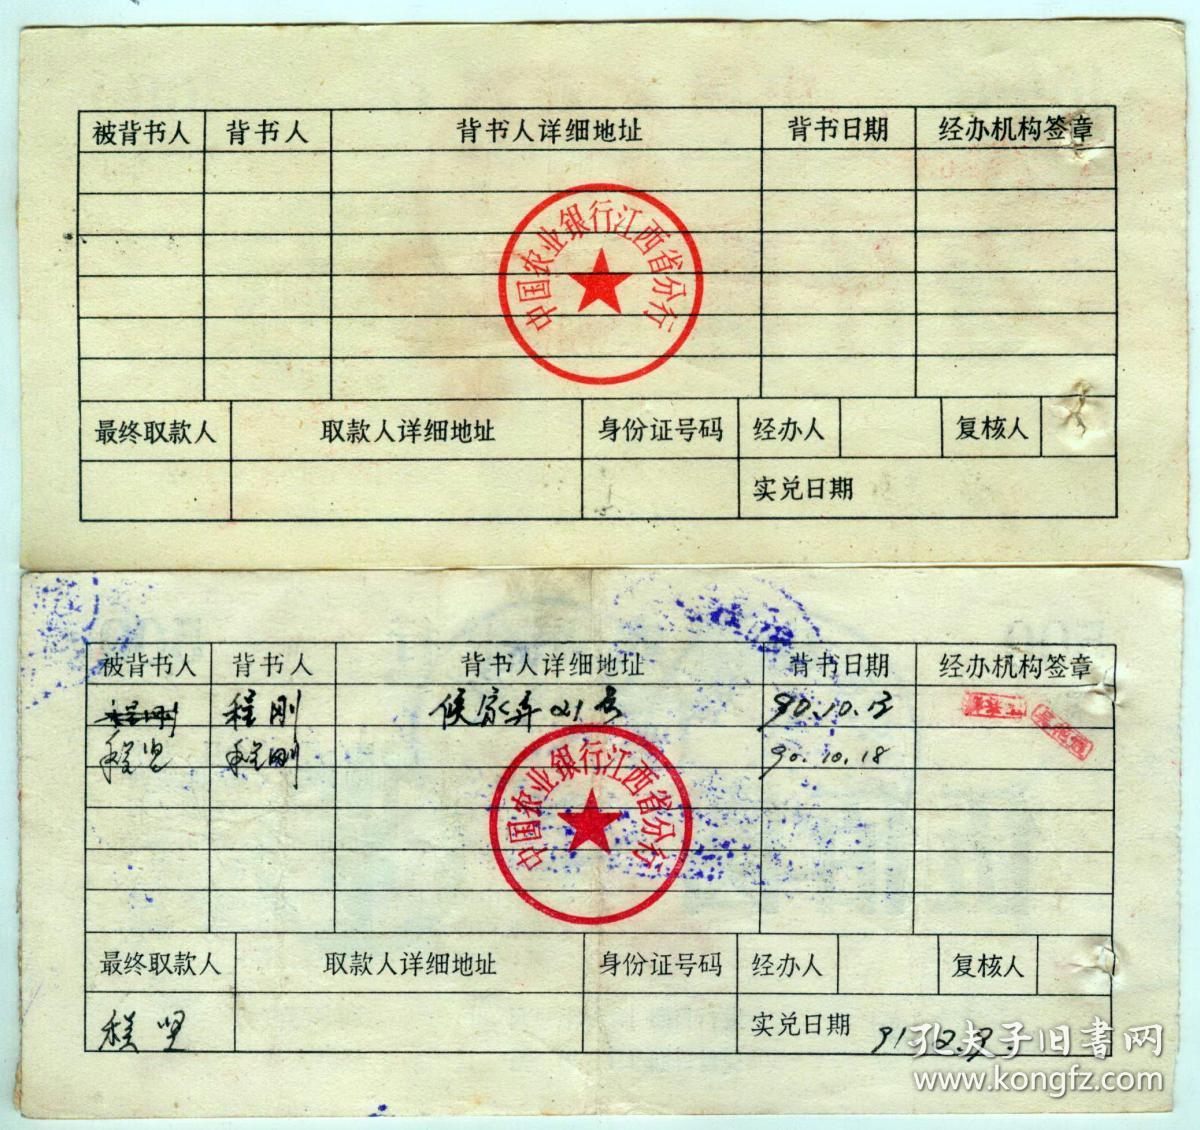 被背书人 背书人 背书人详细地址 背书日期 经办机构签章
中国农业银行江西省分行
最终取款人 取款人详细地址 身份证号码 经办人 复核人
实兑日期
被背书人 背书人 背书人详细地址 背书日期 经办机构签章
程刚 程刚 侯家弄21号
程坚 程刚 90.10.18
中国农业银行江西省分行
最终取款人 取款人详细地址 身份证号码 经办人 复核人
程坚 实兑日期
孔夫子旧书网
www.kongfz.com